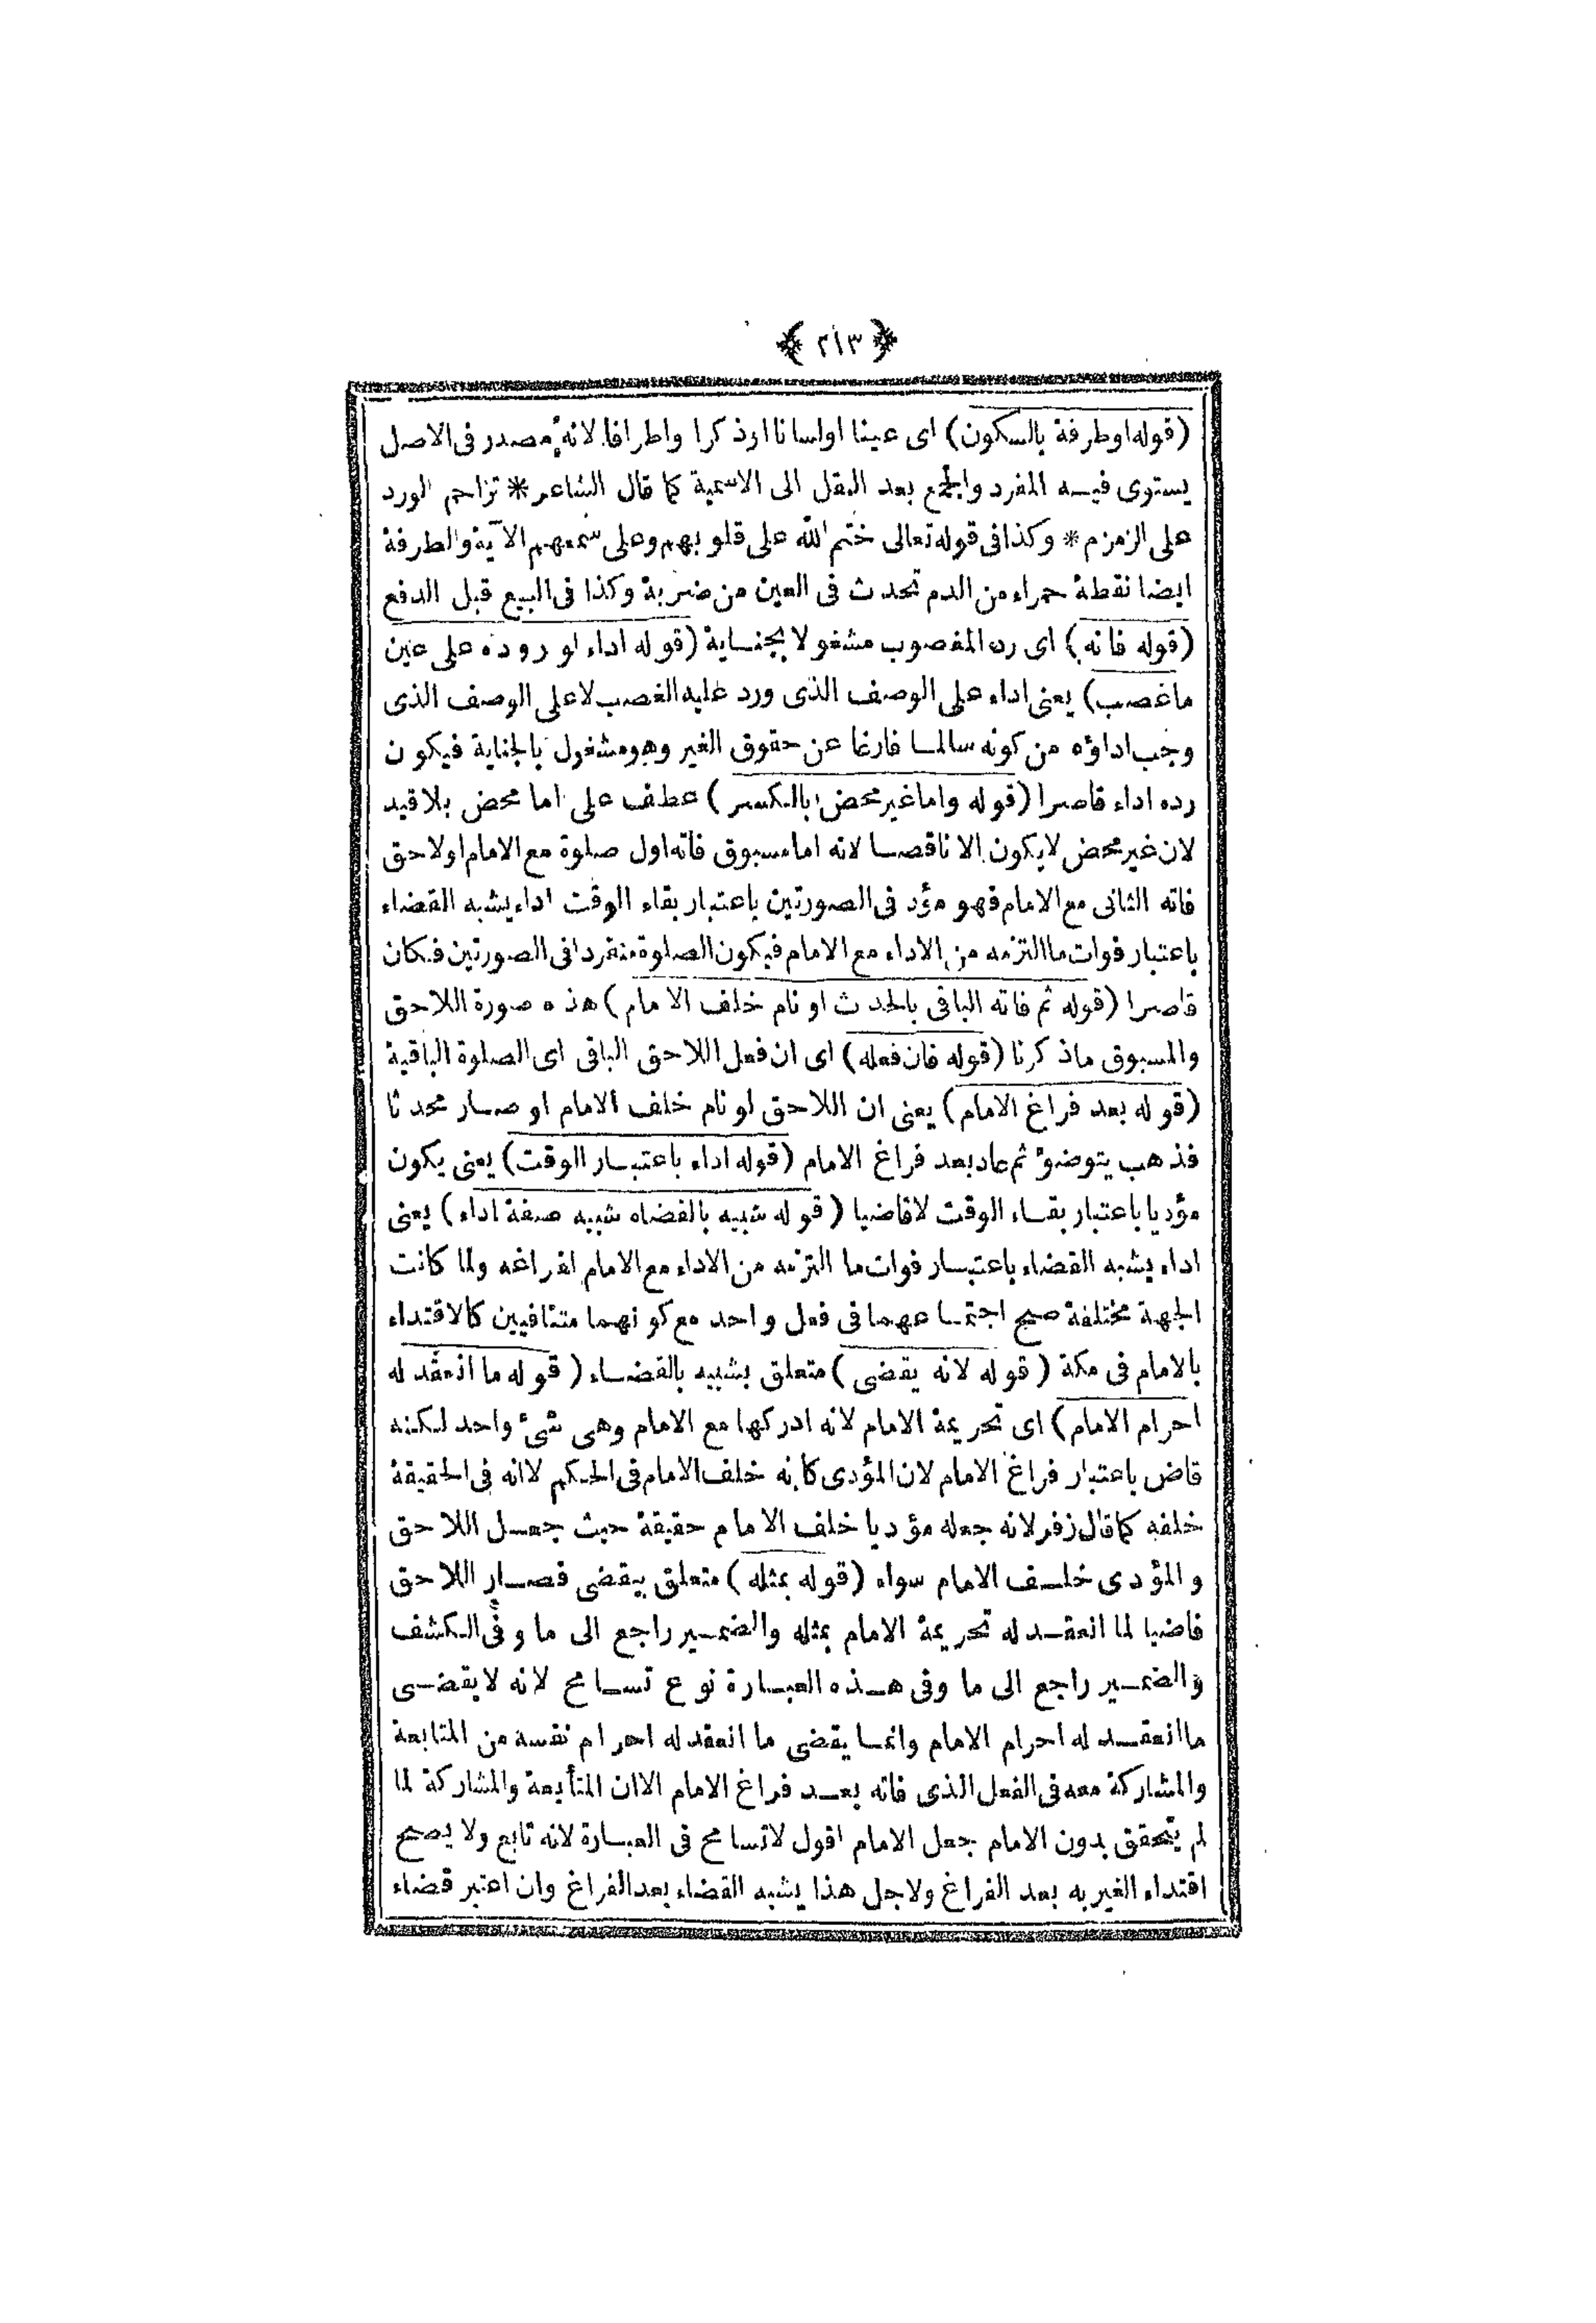 ﴿ ٢١٣ ﴾
(قوله اوطرفة بالسكون) اى عينا اولسانا اوذكرا واطرافا لانه مصدر فى الاصل
يستوى فيه المفرد والجمع بعد النقل الى الاسمية كما قال الشاعر * تزاحم الورد
على الزمزم * وكذا فى قوله تعالى ختم الله على قلوبهم وعلى سمعهم الآية والطرفة
ايضا نقطة حمراء من الدم تحدث فى العين من ضربة وكذا فى البيع قبل الدفع
(قوله فانه) اى رد المغصوب مشغولا بجناية (قوله اداء لوروده على عين
ماغصب) يعنى اداء على الوصف الذى ورد عليه الغصب لاعلى الوصف الذى
وجب اداؤه من كونه سالما فارغا عن حقوق الغير وهو مشغول بالجناية فيكون
رده اداء قاصرا (قوله واما غير محض بالكسر) عطف على اما محض بلاقيد
لان غير محض لايكون الا ناقصا لانه اما مسبوق فاته اول صلوة مع الامام اولاحق
فاته الثانى مع الامام فهو مؤد فى الصورتين باعتبار بقاء الوقت اداء يشبه القضاء
باعتبار فوات ماالتزمه من الاداء مع الامام فيكون الصلوة منفردا فى الصورتين فكان
قاصرا (قوله ثم فاته الباقى بالحدث او نام خلف الامام) هذه صورة اللاحق
والمسبوق ماذكرنا (قوله فان فعله) اى ان فعل اللاحق الباقى اى الصلوة الباقية
(قوله بعد فراغ الامام) يعنى ان اللاحق لو نام خلف الامام او صار محدثا
فذهب يتوضؤ ثم عاد بعد فراغ الامام (قوله اداء باعتبار الوقت) يعنى يكون
مؤديا باعتبار بقاء الوقت لاقاضيا (قوله شبيه بالقضاء شبيه صفة اداء) يعنى
اداء يشبه القضاء باعتبار فوات ما التزمه من الاداء مع الامام لفراغه ولما كانت
الجهة مختلفة صح اجتماعهما فى فعل واحد مع كونهما متنافيين كالاقتداء
بالامام فى مكة (قوله لانه يقضى) متعلق بشبيه بالقضاء (قوله ما انعقد له
احرام الامام) اى تحريمة الامام لانه ادركها مع الامام وهى شئ واحد لكنه
قاض باعتبار فراغ الامام لان المؤدى كانه خلف الامام فى الحكم لاانه فى الحقيقة
خلفه كماقال زفر لانه جعله مؤديا خلف الامام حقيقة حيث جعل اللاحق
والمؤدى خلف الامام سواء (قوله بمثله) متعلق بيقضى فصار اللاحق
قاضيا لما انعقد له تحريمة الامام بمثله والضمير راجع الى ما وفى الكشف
والضمير راجع الى ما وفى هذه العبارة نوع تسامح لانه لايقضى
ماانعقد له احرام الامام وانما يقضى ما انعقد له احرام نفسه من المتابعة
والمشاركة معه فى الفعل الذى فاته بعد فراغ الامام الاان المتأبعة والمشاركة لما
لم يتحقق بدون الامام جعل الامام اقول لاتسامح فى العبارة لانه تابع ولا يصح
اقتداء الغير به بعد الفراغ ولاجل هذا يشبه القضاء بعد الفراغ وان اعتبر قضاء